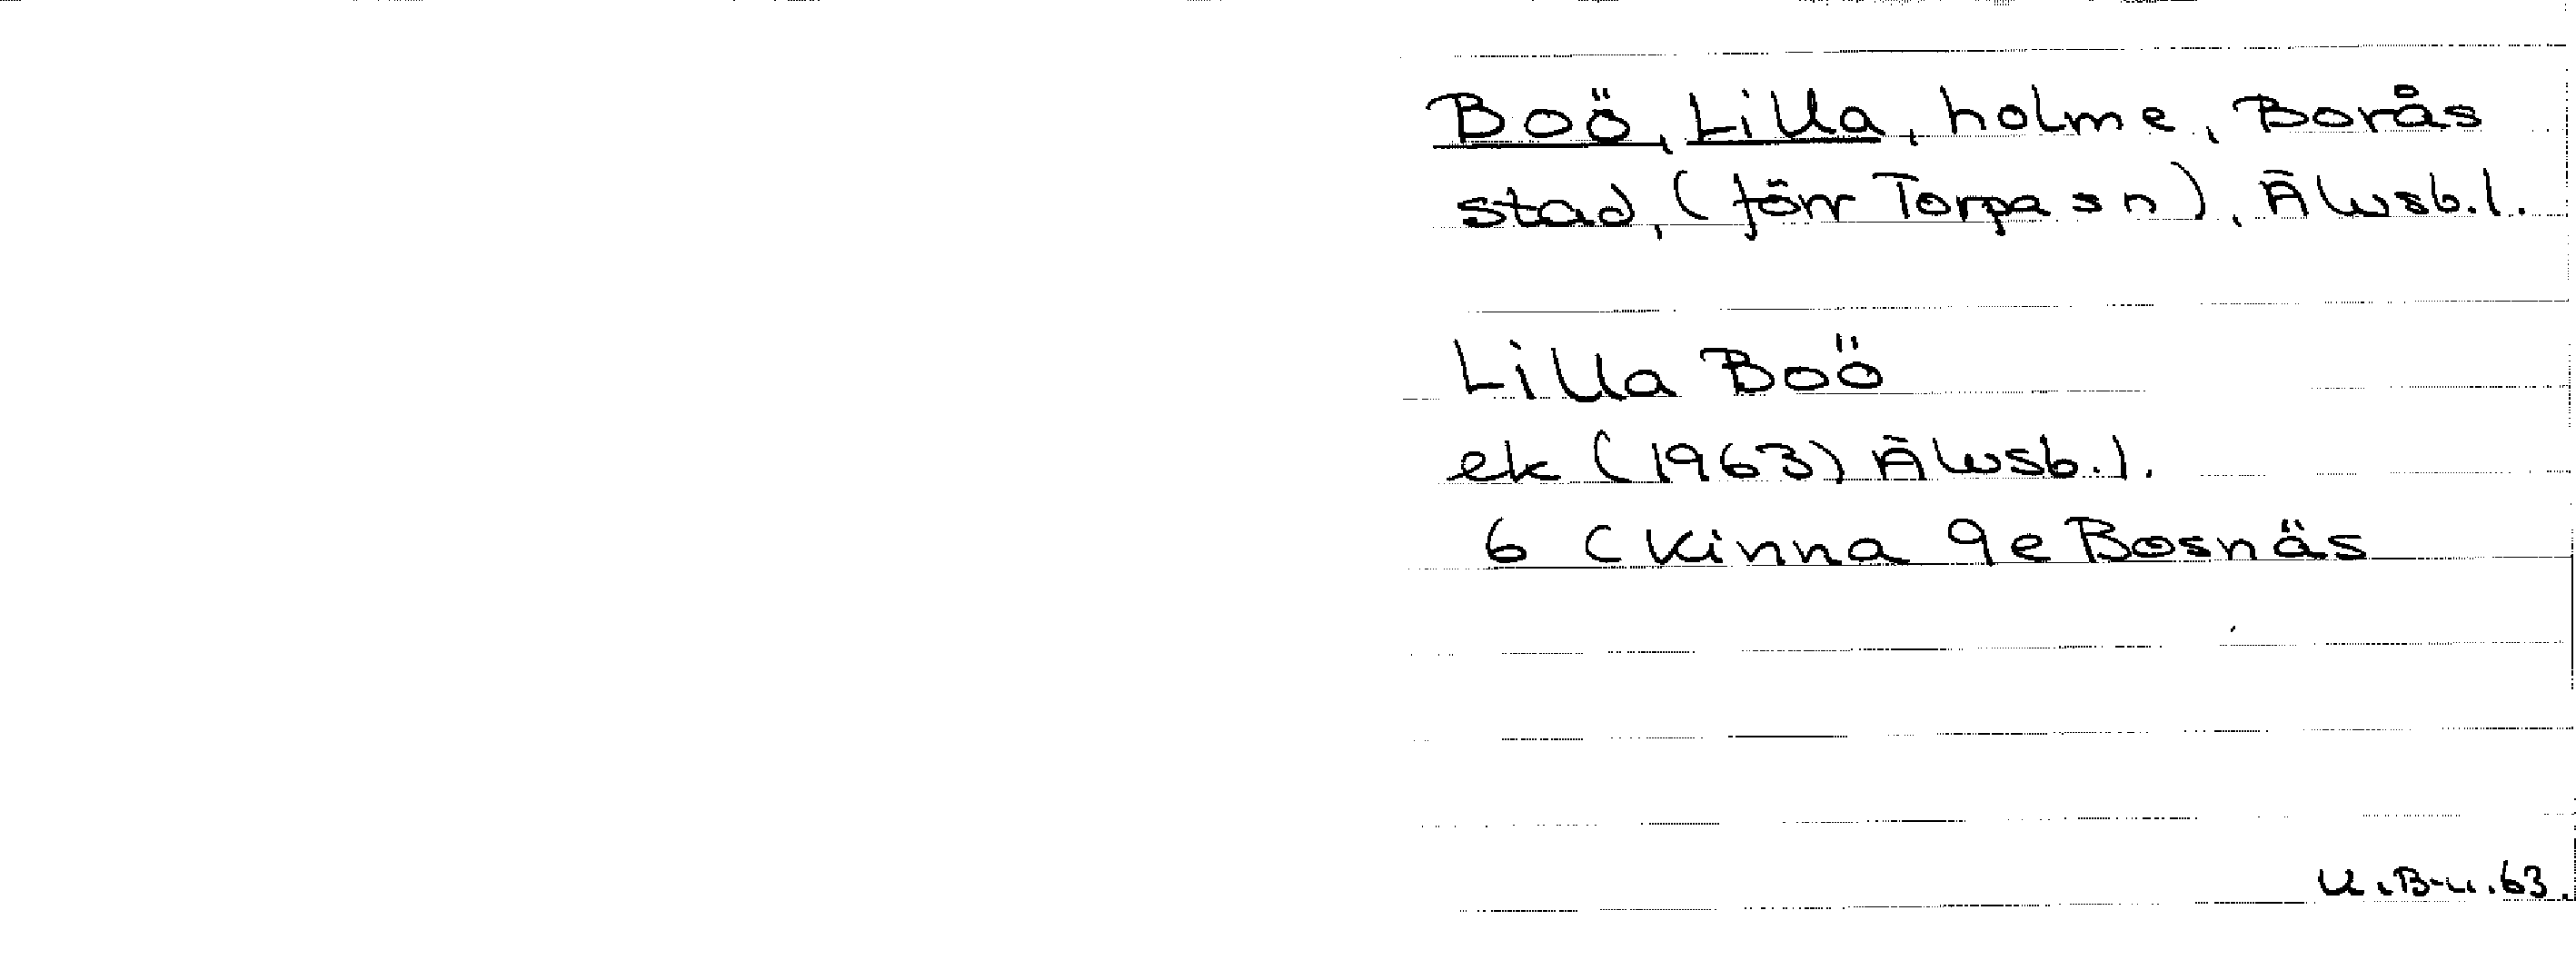 Boö, Lilla, holme, Borås
stad, (förr Torpa sn), Älvsb.l.
Lilla Boö
ek (1963) Älvsb.l.
6 C Kinna 9e Bosnäs
U.B-u.63.